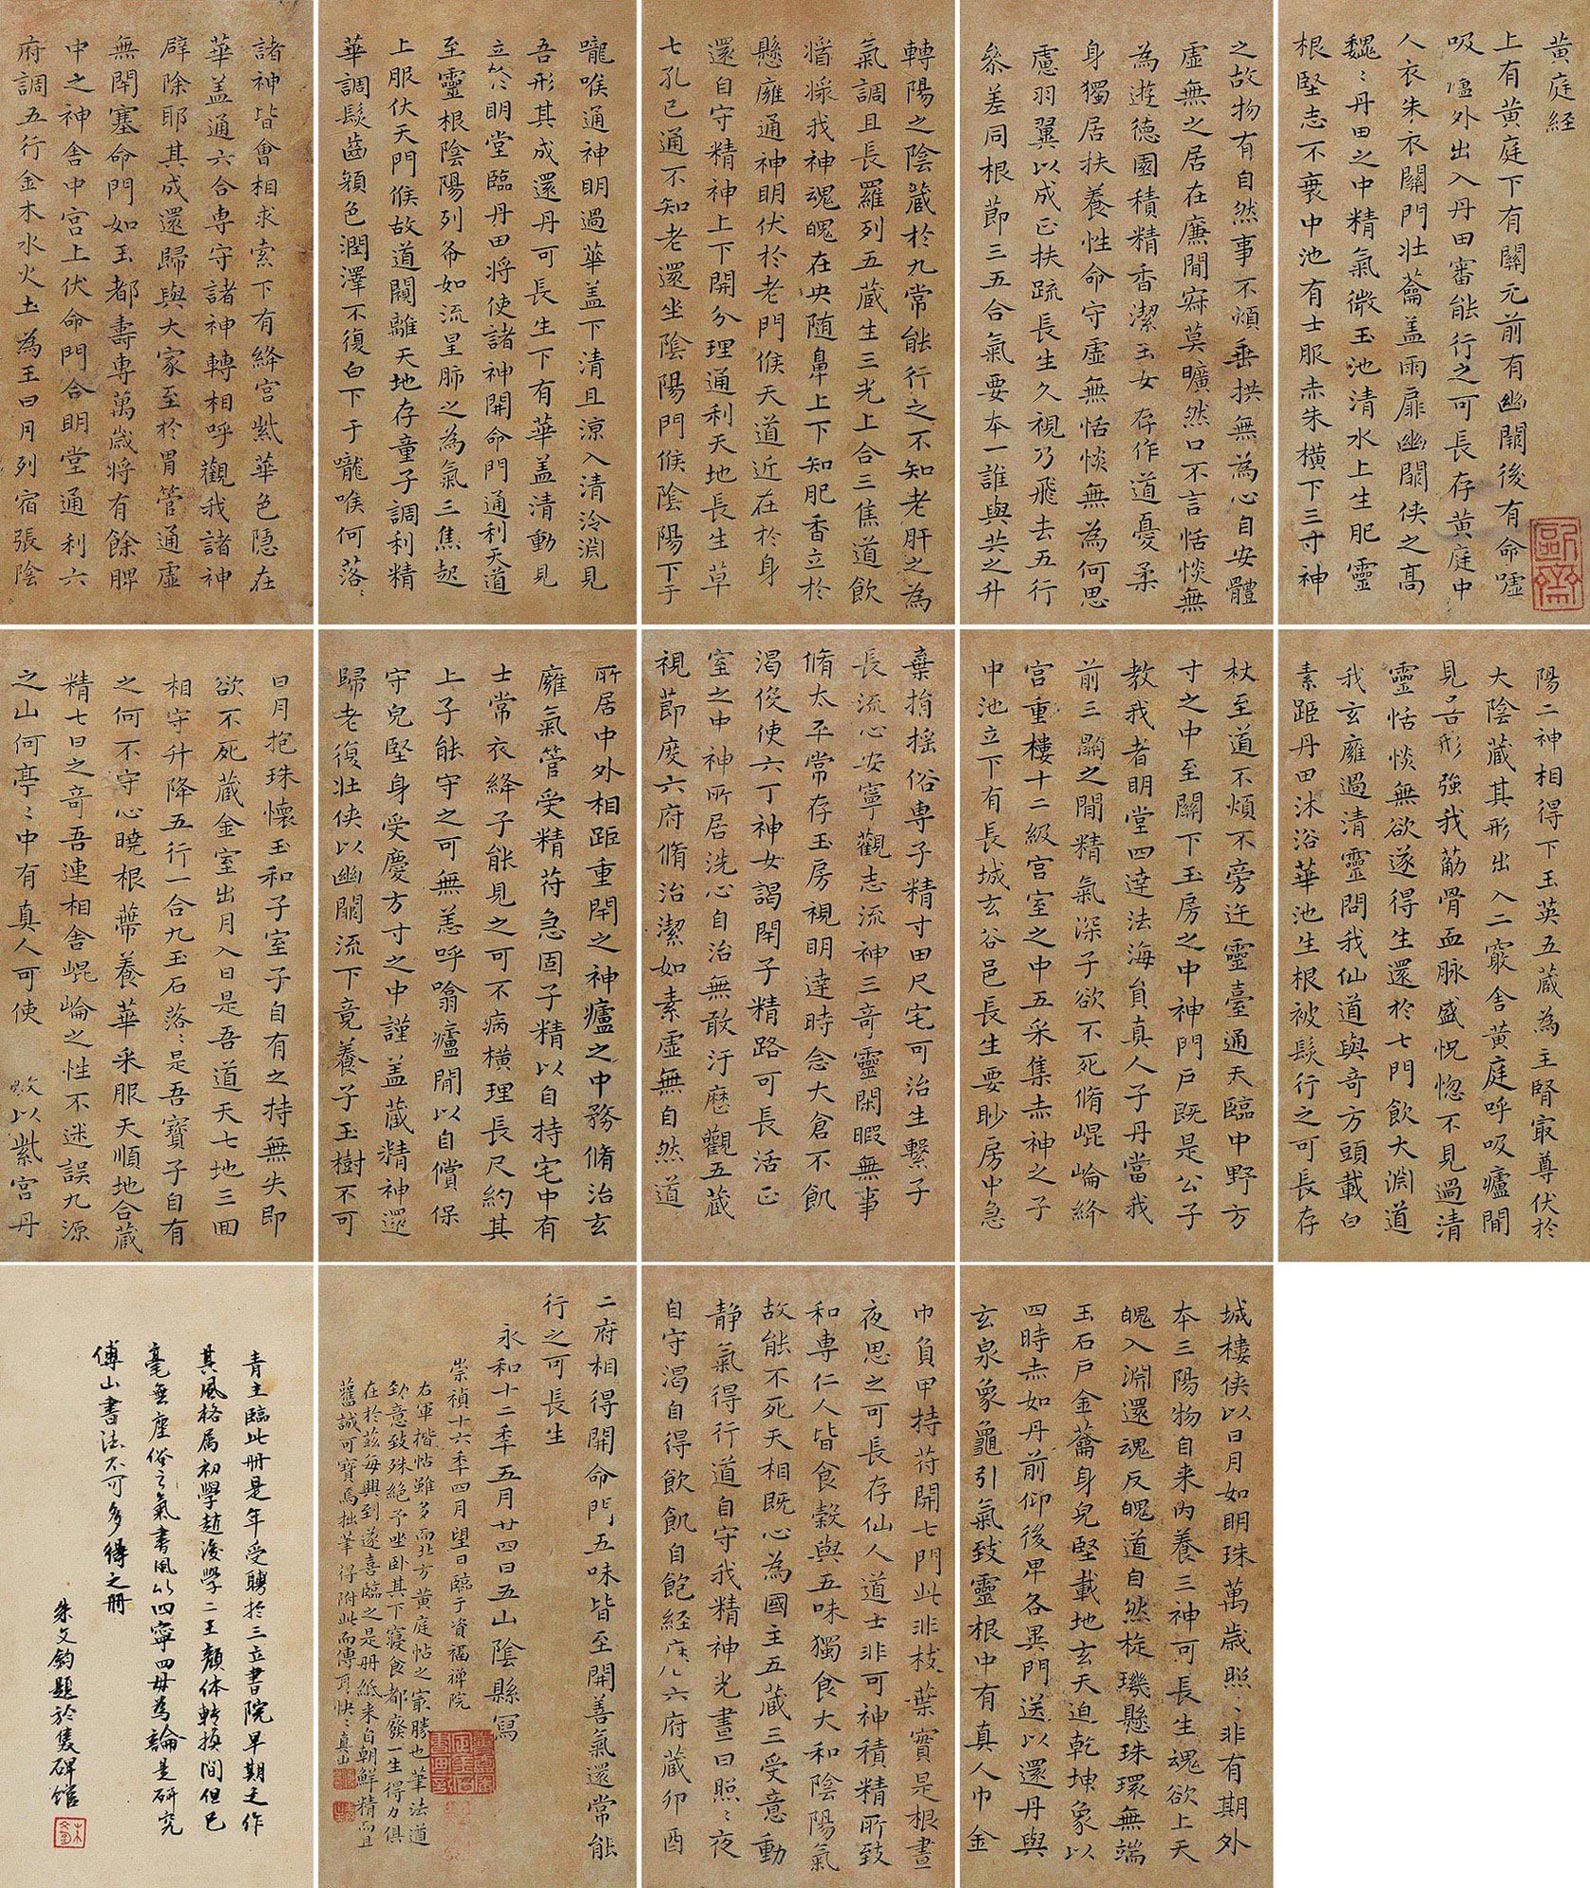 黃庭経
上有黃庭下有關元前有幽闕後有命嘘
吸廬外出入丹田審能行之可長存黃庭中
人衣朱衣關門壯蘥盖兩扉幽關俠之高
魏〻丹田之中精氣微玉池清水上生肥靈
根堅志不衰中池有士服赤朱橫下三寸神
之故物有自然事不煩垂拱無為心自安體
虛無之居在廉閒寂莫曠然口不言恬惔無
為遊德園積精香潔玉女存作道憂柔
身獨居扶養性命守虛無恬惔無為何思
慮羽翼以成正扶疏長生久視乃飛去五行
叅差同根節三五合氣要本一誰與共之升
轉陽之陰藏於九常能行之不知老肝之為
氣調且長羅列五藏生三光上合三焦道飲
漿我神魂魄在央随鼻上下知肥香立於
懸廱通神明伏於老門候天道近在於身
還自守精神上下開分理通利天地長生草
七孔已通不知老還坐陰陽門候陰陽下于
嚨喉通神明過華盖下清且涼入清泠淵見
吾形其成還丹可長生下有華盖清動見
立於明堂臨丹田将使諸神開命門通利天道
至靈根陰陽列布如流星肺之為氣三焦起
上服伏天門候故道闚離天地存童子調利精
華調髮齒顏色潤澤不復白下于嚨喉何落〻
諸神皆會相求索下有絳宮紫華色隱在
華盖通六合專守諸神轉相呼觀我諸神
辟除耶其成還歸與大家至於胃管通虛
無閇塞命門如玉都壽專萬歲将有餘脾
中之神舍中宮上伏命門合明堂通利六
府調五行金木水火土為王日月列宿張陰
陽二神相得下玉英五藏為主腎冣尊伏於
大陰藏其形出入二竅舍黃庭呼吸廬閒
見吾形強我筋骨血脉盛怳惚不見過清
靈恬惔無欲遂得生還於七門飲大淵道
我玄廱過清靈問我仙道與奇方頭載白
素距丹田沐浴華池生根被髮行之可長存
杖至道不煩不旁迕靈臺通天臨中野方
寸之中至關下玉房之中神門戶既是公子
教我者明堂四達法海負真人子丹當我
前三關之閒精氣深子欲不死脩崐崘絳
宮重樓十二級宮室之中五采集赤神之子
中池立下有長城玄谷邑長生要眇房中急
棄捐搖俗專子精寸田尺宅可治生繫子
長流心安寧觀志流神三奇靈閑暇無事
脩太平常存玉房視明達時念大倉不飢
渴伇使六丁神女謁閇子精路可長活正
室之中神所居洗心自治無敢汙歷觀五藏
視節度六府脩治潔如素虛無自然道
所居中外相距重閇之神廬之中務脩治玄
廱氣管受精符急固子精以自持宅中有
士常衣絳子能見之可不病橫理長尺約其
上子能守之可無恙呼噏廬閒以自償保
守皃堅身受慶方寸之中謹盖藏精神還
歸老復壯俠以幽關流下竟養子玉樹不可
日月抱珠懷玉和子室子自有之持無失即
欲不死藏金室出月入日是吾道天七地三回
相守升降五行一合九玉石落〻是吾寶子自有
之何不守心曉根蔕養華采服天順地合藏
精七日之奇吾連相舍崐崘之性不迷誤九源
之山何亭〻中有真人可使 以紫宮丹
城樓俠以日月如明珠萬歲照〻非有期外
本三陽物自来內養三神可長生魂欲上天
魄入淵還魂反魄道自然梔璣懸珠環無端
玉石戶金蘥身皃堅載地玄天迫乾坤象以
四時赤如丹前仰後卑各異門送以還丹與
玄泉象龜引氣致靈根中有真人巾金
巾負甲持符開七門此非枝葉實是根晝
夜思之可長存仙人道士非可神積精所致
和專仁人皆食穀與五味獨食大和陰陽氣
故能不死天相既心為國主五藏三受意動
靜氣得行道自守我精神光晝日照〻夜
自守渴自得飲飢自飽経 六府藏卯酉
二府相得開命門五味皆至開善氣還常能
行之可長生
永和十二秊五月廿四日五山陰縣寫
崇禎十六秊四月望日臨于資福禅院
右軍楷帖雖多而北方黃庭帖之冣勝也華法道
致意致殊絶予坐卧其下寢食都廢一生得力俱
在於茲每興到遂喜臨之是册紙来自朝鮮精而且
舊誠可寶焉拙筆得附此而傳可快〻真山
青主臨此册是年受聘於三立書院早期之作
其風格属初學趙後學二王顏体転换間但已
毫無塵俗之氣書風以四寧四毋為論是研究
傅山書法不可多得之册
朱文鈞題於隻碑館